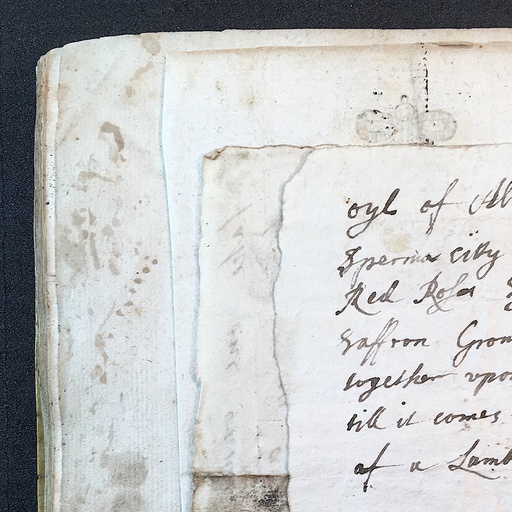 oyl of Al
Sperma city
Red Rose
Saffron Grou
together upon
till it comes
of a Lamb